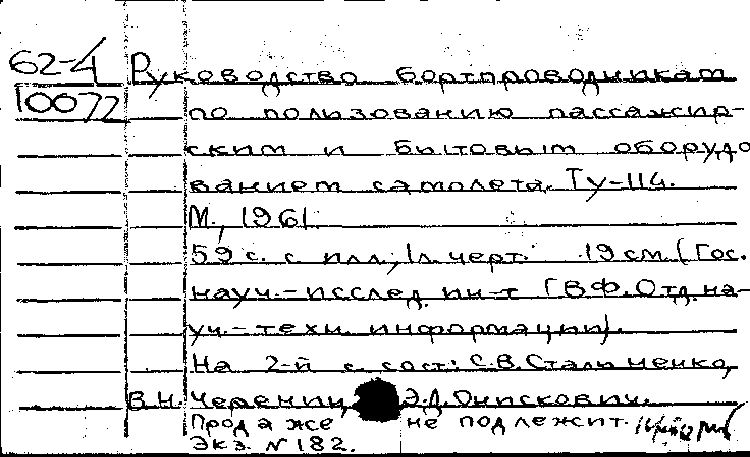 62-4 Руководство бортпроводникам
10072 по пользованию пассажир-
ским и бытовым оборудо
ванием самолета Ту-114.
М., 1961.
59 с. с илл., 1 л. черт. 19 см. (Гос.
науч.-исслед. ин-т ГВФ. Отд. на-
уч.-техн. информации).
На 2-й с. сост.: С.В. Стальненко,
В.Н. Черенин, Э.Д. Онискович.
Продаже не подлежит.
Экз. N 182.